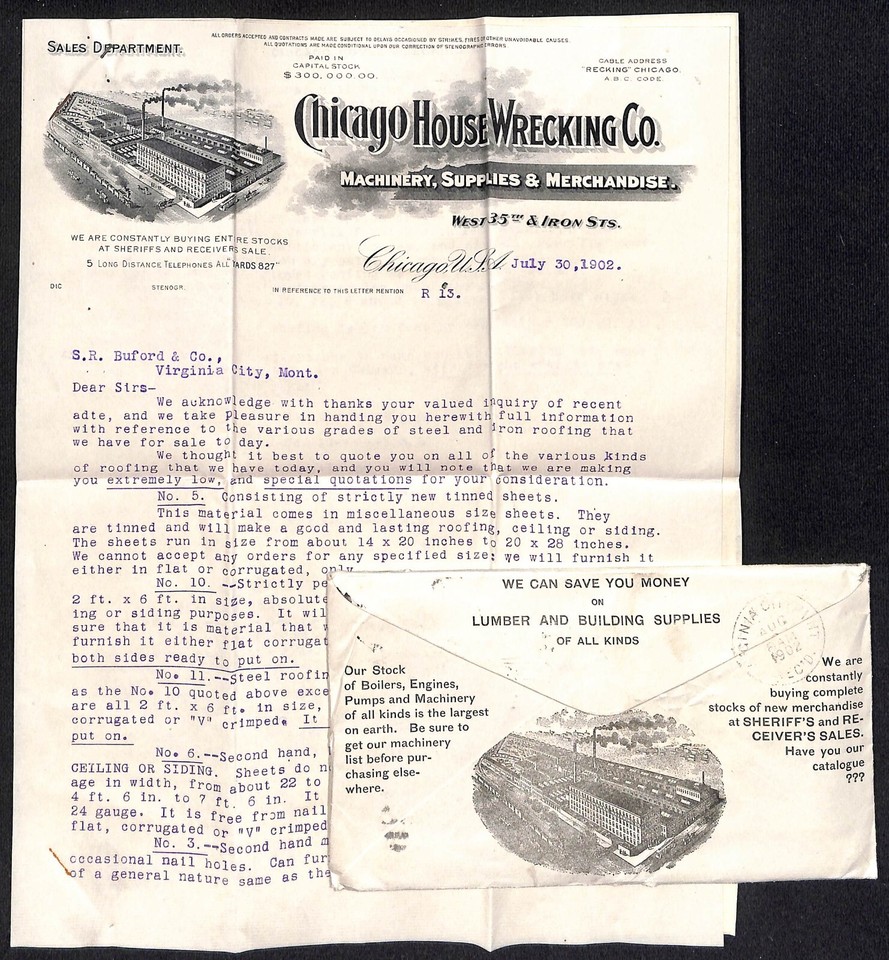 SALES DEPARTMENT.
ALL ORDERS ACCEPTED AND CONTRACTS MADE ARE SUBJECT TO DELAYS OCCASIONED BY STRIKES, FIRES OR OTHER UNAVOIDABLE CAUSES.
ALL QUOTATIONS ARE MADE CONDITIONAL UPON OUR CORRECTION OF STENOGRAPHIC ERRORS
PAID IN
CAPITAL STOCK
$300,000.00.
CABLE ADDRESS
"RECKING" CHICAGO.
A.B.C. CODE.
Chicago HOUSE WRECKING CO.
MACHINERY, SUPPLIES & MERCHANDISE.
WEST 35TH & IRON STS.
WE ARE CONSTANTLY BUYING ENTIRE STOCKS
AT SHERIFFS AND RECEIVERS SALE.
5 LONG DISTANCE TELEPHONES ALL "YARDS 827"
Chicago, U.S.A. July 30,1902.
DIC STENOGR. IN REFERENCE TO THIS LETTER MENTION R 13.
S.R. Buford & Co.,
Virginia City, Mont.
Dear Sirs-
We acknowledge with thanks your valued inquiry of recent
adte, and we take pleasure in handing you herewith full information
with reference to the various grades of steel and iron roofing that
we have for sale to day.
We thought it best to quote you on all of the various kinds
of roofing that we have today, and you will note that we are making
you extremely low, and special quotations for your consideration.
No. 5. Consisting of strictly new tinned sheets.
This material comes in miscellaneous size sheets. They
are tinned and will make a good and lasting roofing, ceiling or siding.
The sheets run in size from about 14 x 20 inches to 20 x 28 inches.
We cannot accept any orders for any specified size; we will furnish it
either in flat or corrugated, only
No. 10. --Strictly pe
2 ft. x 6 ft. in size, absolute
ing or siding purposes. It wil
sure that it is material that w
furnish it either flat corrugat
both sides ready to put on.
No. 11.--Steel roofin
as the No. 10 quoted above exce
are all 2 ft. x 6 ft. in size,
corrugated or "V" crimped. It
put on.
No. 6.--Second hand,
CEILING OR SIDING. Sheets do n
age in width, from about 22 to
4 ft. 6 in. to 7 ft. 6 in. It
24 gauge. It is free from nail
flat, corrugated or "V" crimped
No. 3.--Second hand m
occasional nail holes. Can fur
of a general nature same as the
WE CAN SAVE YOU MONEY
ON
LUMBER AND BUILDING SUPPLIES
OF ALL KINDS
Our Stock
of Boilers, Engines,
Pumps and Machinery
of all kinds is the largest
on earth. Be sure to
get our machinery
list before pur-
chasing else-
where.
AUG
1902
REC'D.
We are
constantly
buying complete
stocks of new merchandise
at SHERIFF'S and RE-
CEIVER'S SALES.
Have you our
catalogue
???